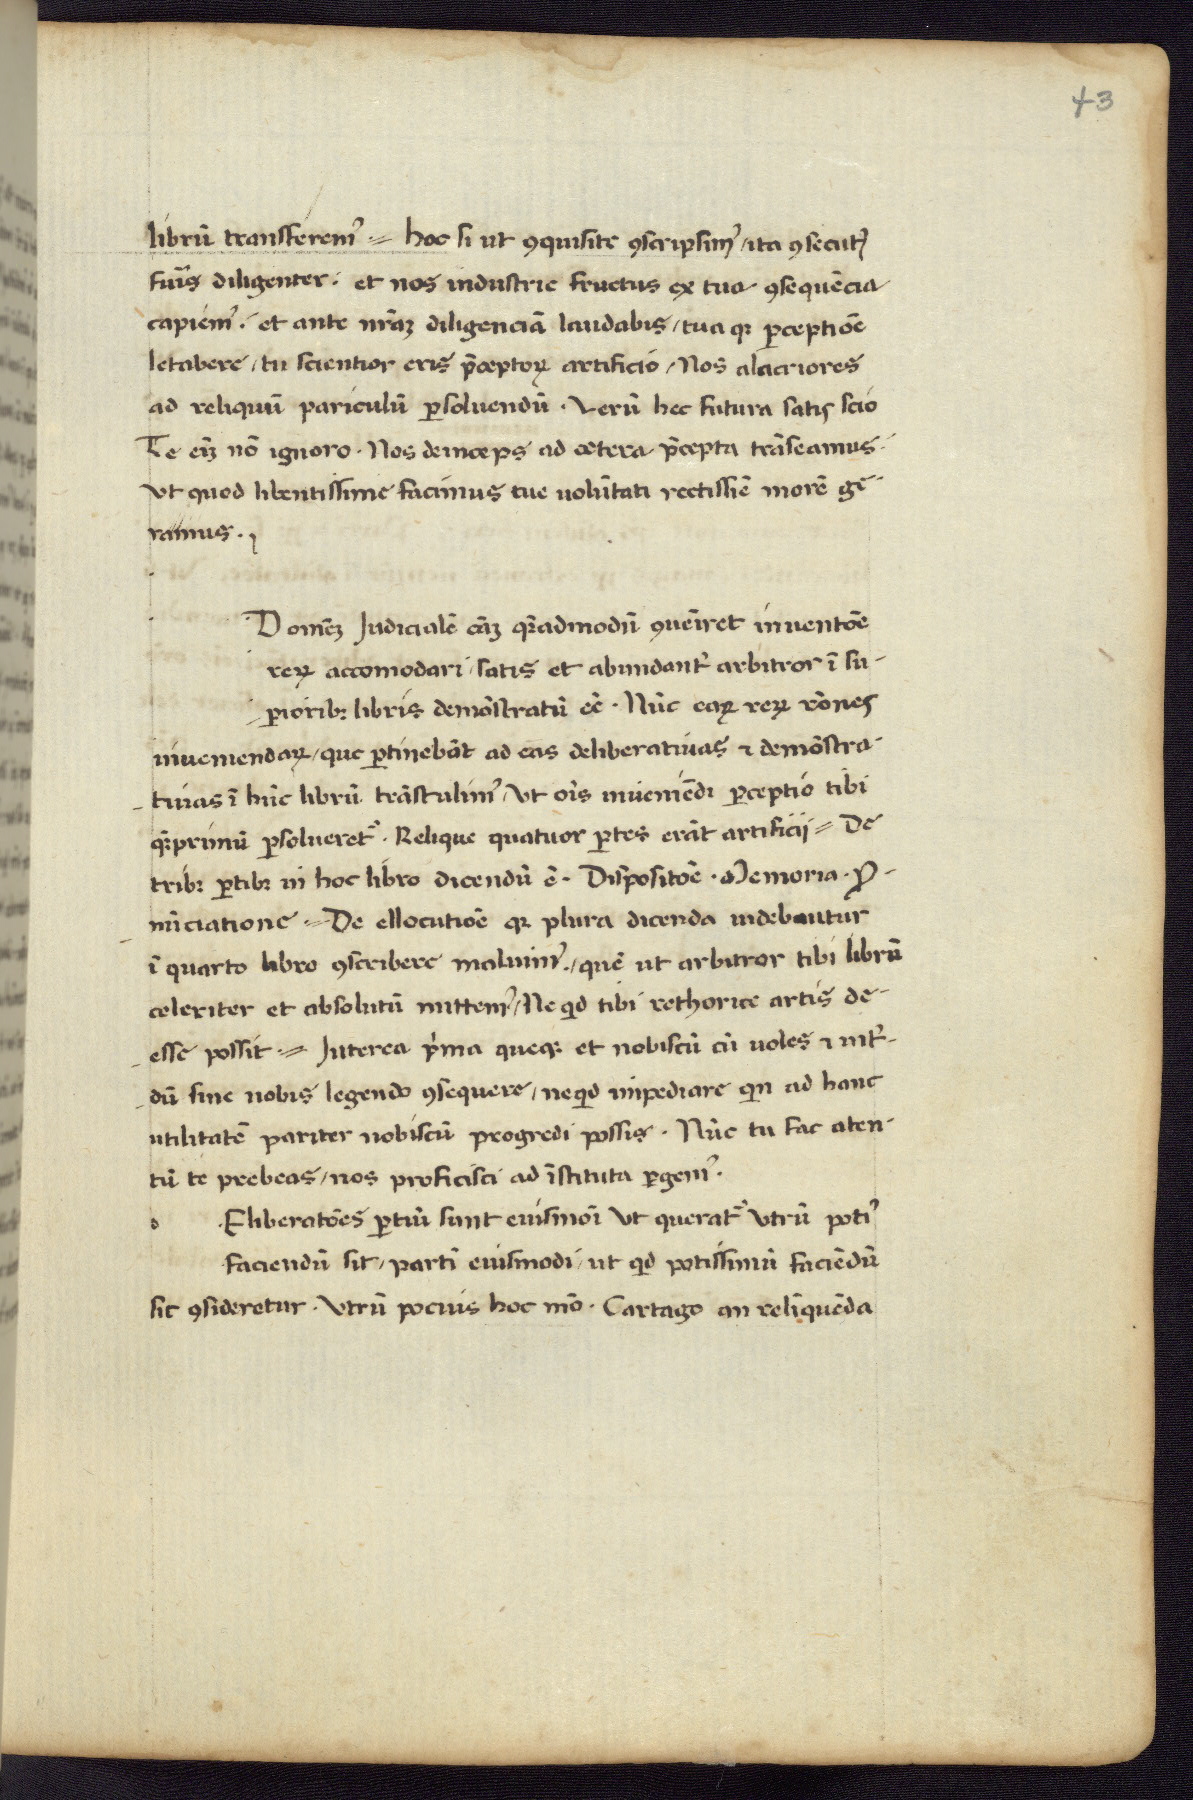 43
librū transferemꝰ hoc si ut ꝯquisite ꝯscripsimꝰ / ita ꝯsecutꝰ
fuīs diligenter. et nos industrie fructus ex tua ꝯsequēcia
capiemꝰ. et ante nrāꝫ diligenciā laudabis / tuaqꝫ ꝑceptiōe
letabere / tu scientior eris p̄ceptoꝝ artificio / Nos alacriores
ad reliquū pariculū ꝑsoluendū. Verū hec futura satis scio
Te eīꝫ nō ignoro. Nos deinceps ad cetera p̄cepta trāseamus.
Vt quod libentissime facimus tue volūtati rectissīe morē ge-
ramus.
Domēꝫ Judicialē cāꝫ qꝫadmodū ꝯuēiret inuentōe
reꝝ accomodari / satis et abundant᷑ arbitror ī su-
ꝑioribꝫ libris demōstratū eē. Nūc eaꝝ reꝝ rōnes
inueniendaꝝ / que ꝑtinebāt ad cās deliberatiuas ⁊ demōstra-
tiuas ī hūc librū trāstulimꝰ / Vt oīs inueniēdi ꝑceptio tibi
qꝫprimū ꝑsolueret᷑. Relique quatuor ꝑtes erāt artificij De
tribꝫ ꝑtibꝫ in hoc libro dicendū ē. Dispositōe. Memoria. Ꝓ-
nūciatione De ellocutiōe qꝫ plura dicenda uidebantur
ī quarto libro ꝯscribere maluimꝰ / quē ut arbitror tibi librū
celeriter et absolutū mittemꝰ / Ne qid tibi rethorice artis de-
esse possit. Interea p̄ma queqꝫ et nobiscū cū uoles ⁊ int᷑-
dū sine nobis legendo ꝯsequere / ne qid impediare qin ad hanc
utilitatē pariter nobiscū progredi possis. Nūc tu fac aten-
tū te prebeas / nos proficisci ad īstituta ꝑgemꝰ.
Eliberatōes ꝑtīm sunt eiusmōi Vt querat᷑ Vtrū potiꝰ
faciendū sit / partī eiusmodi / ut qid potissimū faciēdū
sit ꝯsideretur. Vtrū pocius hoc mō. Cartago an relīquēda